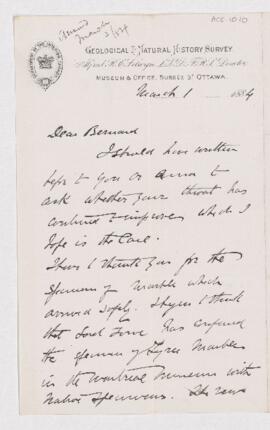 Ans'd
March
5/84
ACC-1010
GEOLOGICAL & NATURAL HISTORY SURVEY.
Alfred R. C. Selwyn, L.L.D. F.R.S. Director
MUSEUM & OFFICE, SUSSEX ST OTTAWA.
March 1 1884
Dear Bernard
I should have written
before to you or Anna to
ask whether your throat has
continued to improve which I
hope is the case.
I have to thank you for the
specimens of Marble which
arrived safely. I think
that Lord Lorne has confused
the specimen of Tyree Marble
in the Montreal Museum with
native specimens.